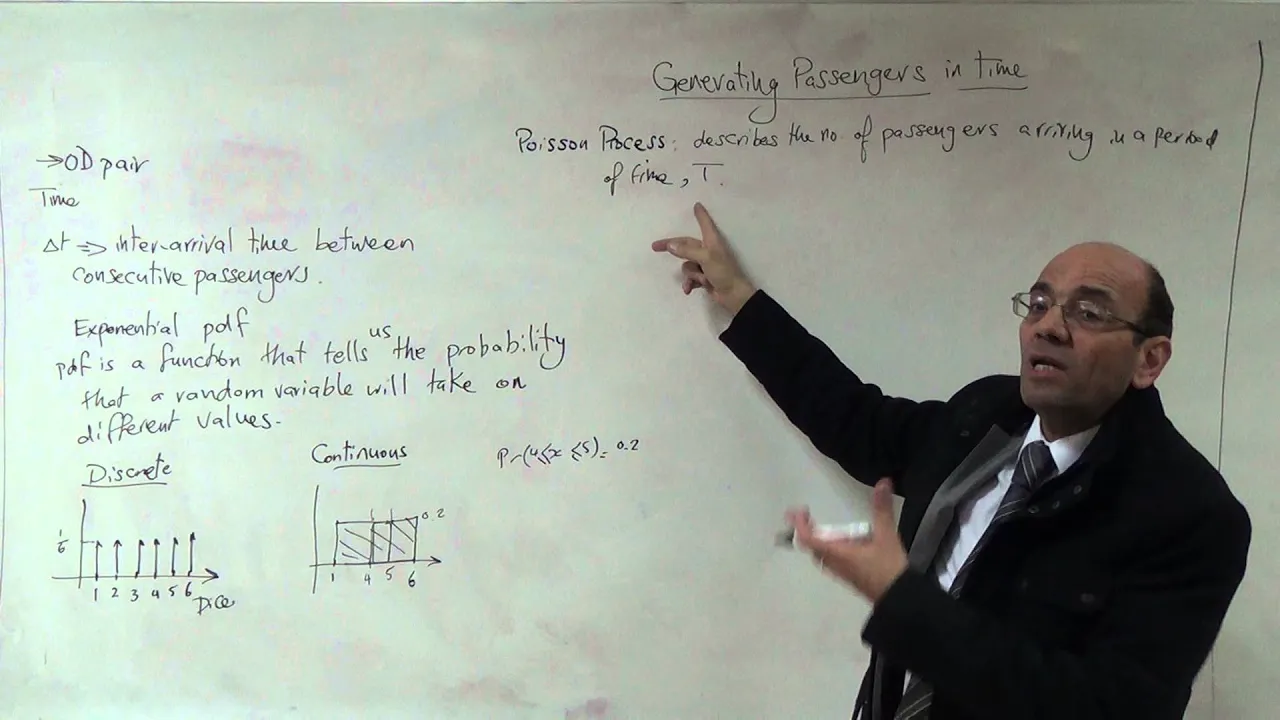 Generating Passengers in Time
Poisson Process: describes the no. of passengers arriving in a period
of time, T.
→OD pair
Time
Δt => inter-arrival time between
consecutive passengers.
Exponential pdf
pdf is a function that tells us the probability
that a random variable will take on
different values.
Discrete
1/6
1 2 3 4 5 6
Dice
Continuous
0.2
1 4 5 6
Pr(4≤x≤5)= 0.2